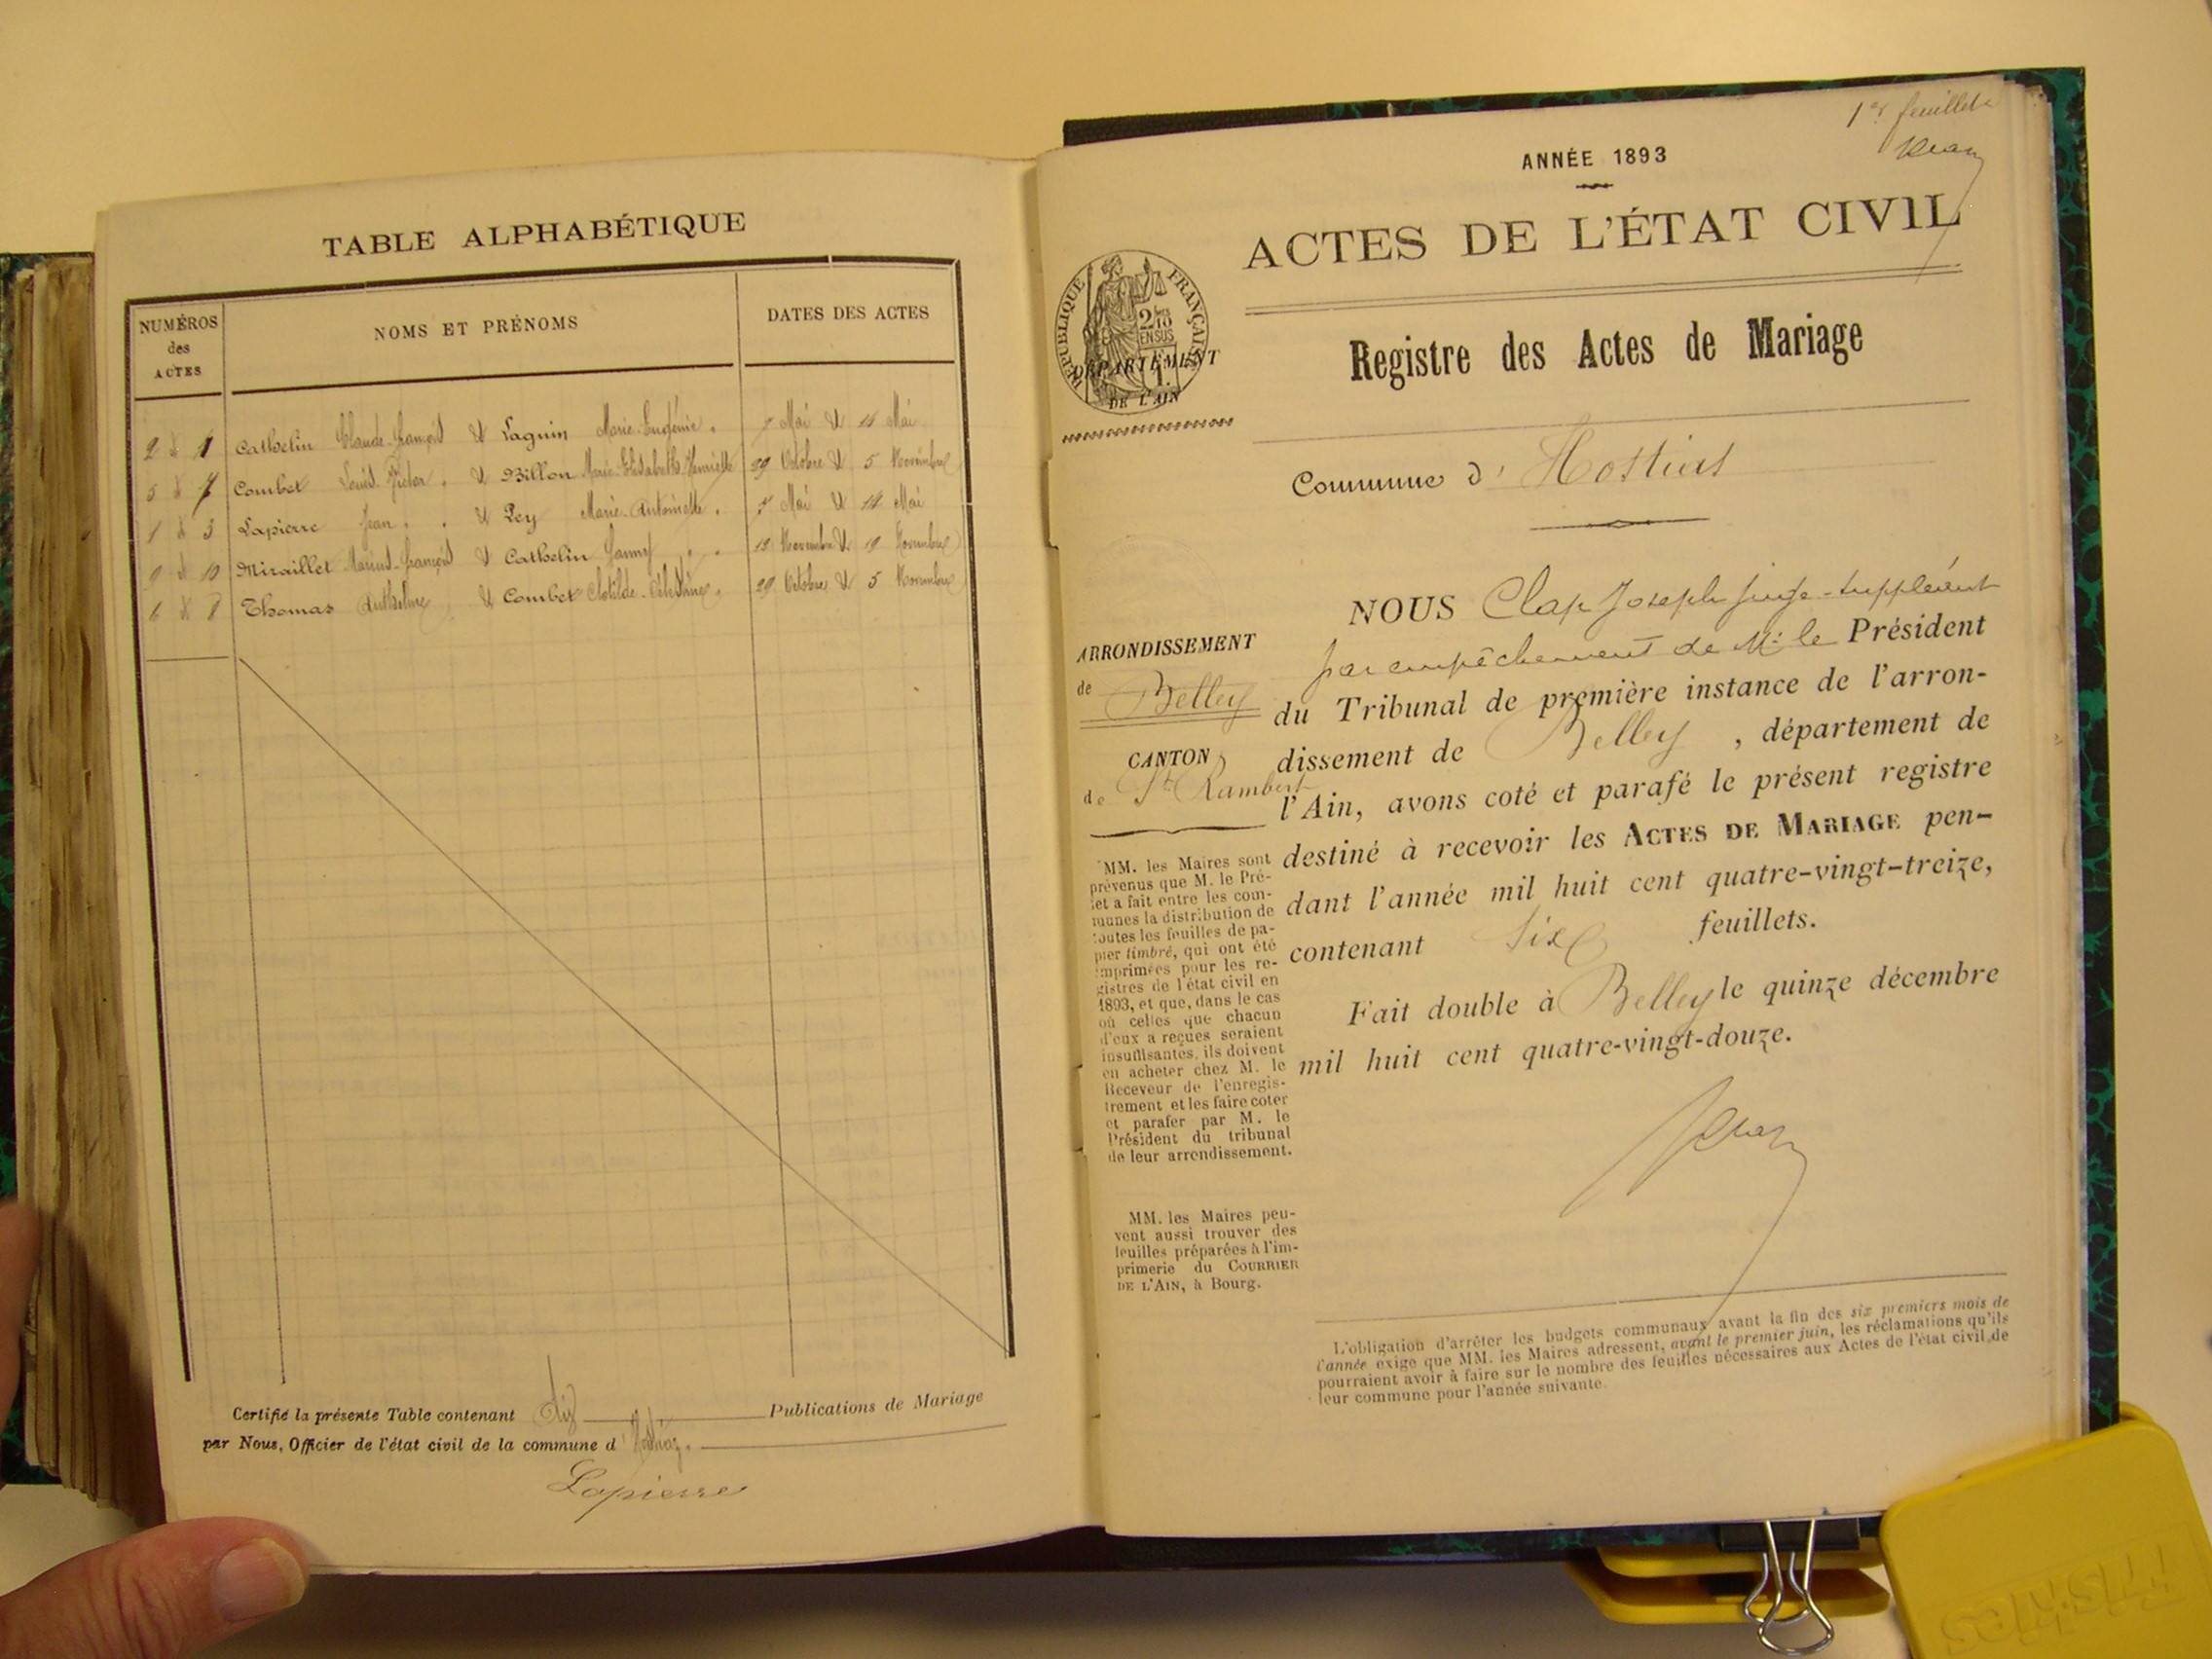 TABLE ALPHABÉTIQUE
NUMÉROS
des
ACTES
NOMS ET PRÉNOMS
DATES DES ACTES
2 & 4 Cathelin Claude-François & Laguin Marie-Eugénie. 7 Mai & 14 Mai
5 & 7 Combet Louis-Victor. & Billon Marie-Elisabeth-Henriette 29 Octobre & 5 Novembre
1 & 3 Lapierre Jean. & Pey Marie-Antoinette. 7 Mai & 14 Mai
9 & 10 Miraillet Marius-François & Cathelin Fanny 12 Novembre & 19 Novembre
6 & 8 Thomas Anthelme & Combet Clotilde-Célestine. 29 Octobre & 5 Novembre
Certifié la présente Table contenant dix Publications de Mariage
par Nous, Officier de l'état civil de la commune d' Hostiaz.
Lapierre
1er feuillet
ANNÉE 1893
ACTES DE L'ÉTAT CIVIL
RÉPUBLIQUE FRANÇAISE
2/10
EN SUS
DÉPARTEMENT
DE L'AIN
Registre des Actes de Mariage
Commune d' Hostias
NOUS Clap Joseph juge-suppléant
par empêchement de Mr le Président
du Tribunal de première instance de l'arron-
dissement de Belley , département de
l'Ain, avons coté et parafé le présent registre
destiné à recevoir les ACTES DE MARIAGE pen-
dant l'année mil huit cent quatre-vingt-treize,
contenant six feuillets.
Fait double à Belley le quinze décembre
mil huit cent quatre-vingt-douze.
ARRONDISSEMENT
de Belley
CANTON
de St Rambert
MM. les Maires sont
prévenus que M. le Pré-
fet a fait entre les com-
munes la distribution de
toutes les feuilles de pa-
pier timbré, qui ont été
imprimées pour les re-
gistres de l'état civil en
1893, et que, dans le cas
où celles que chacun
d'eux a reçues seraient
insuffisantes, ils doivent
en acheter chez M. le
Receveur de l'enregis-
trement et les faire coter
et parafer par M. le
Président du tribunal
de leur arrondissement.
MM. les Maires peu-
vent aussi trouver des
feuilles préparées à l'im-
primerie du COURRIER
DE L'AIN, à Bourg.
L'obligation d'arrêter les budgets communaux avant la fin des six premiers mois de
l'année exige que MM. les Maires adressent, avant le premier juin, les réclamations qu'ils
pourraient avoir à faire sur le nombre des feuilles nécessaires aux Actes de l'état civil de
leur commune pour l'année suivante.
Friskies